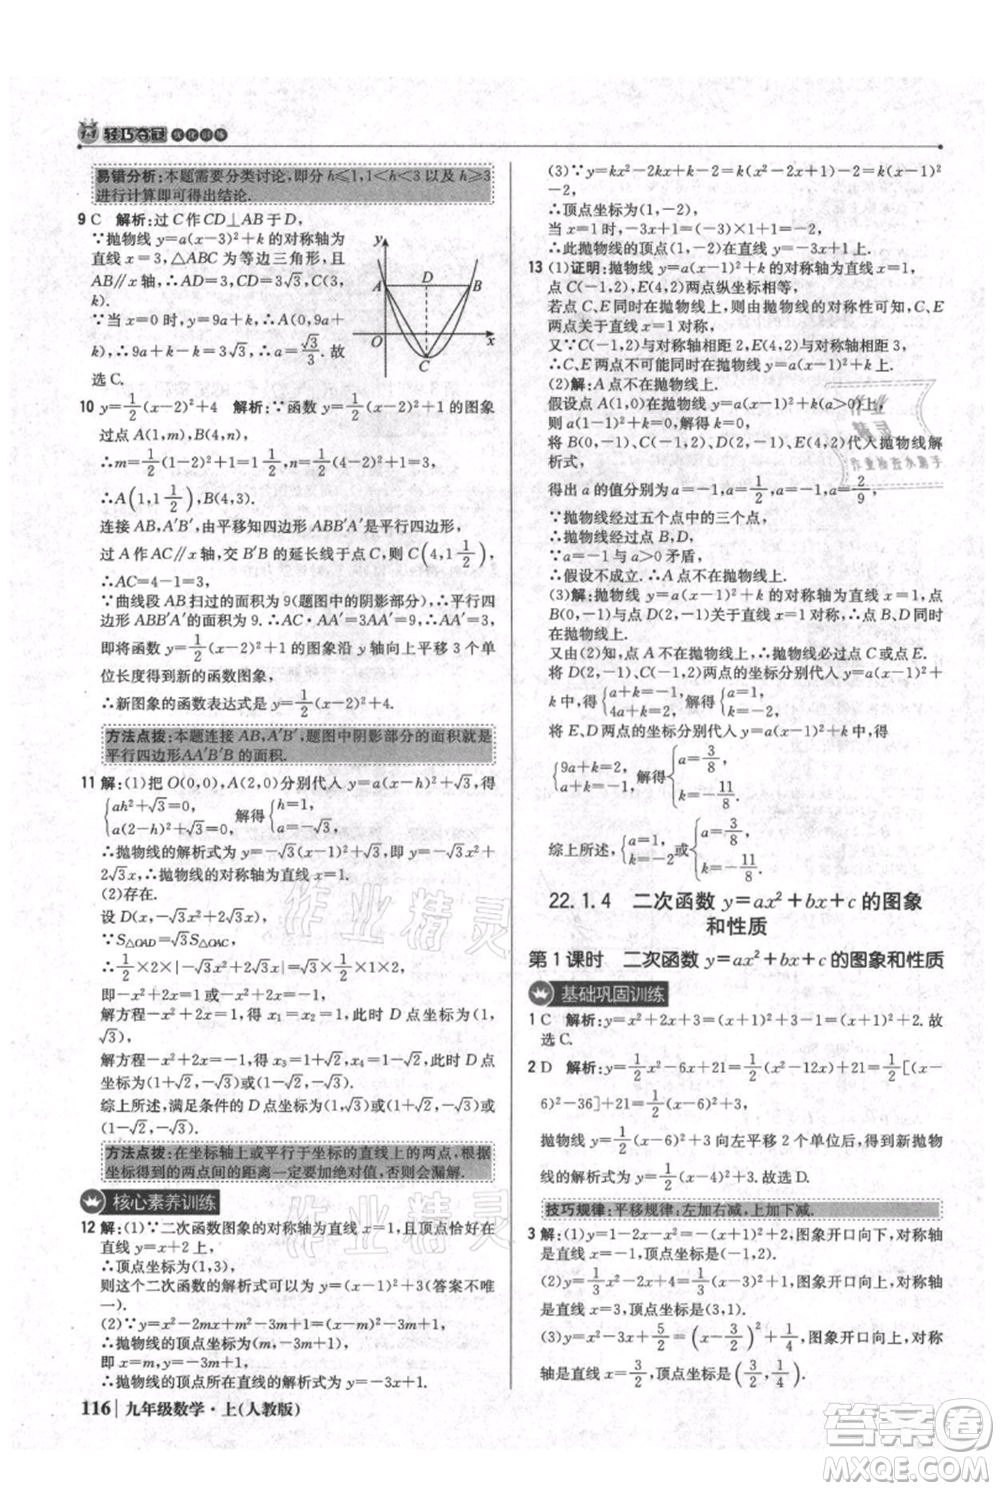 轻巧夺冠 优化训练
易错分析:本题需要分类讨论,即分h≤1,1<h<3以及h≥3
进行计算即可得出结论.
9 C 解析:过C作CD⊥AB于D,
∵抛物线y=a(x-3)²+k的对称轴为
直线x=3,△ABC为等边三角形,且
AB∥x轴,∴AD=3,CD=3√3,C(3,
k).
∵当x=0时,y=9a+k,∴A(0,9a+
k),∴9a+k-k=3√3,∴a=√3/3.故
选C.
y
A D B
O C x
10 y=1/2(x-2)²+4 解析:∵函数y=1/2(x-2)²+1的图象
过点A(1,m),B(4,n),
∴m=1/2(1-2)²+1=1 1/2,n=1/2(4-2)²+1=3,
∴A(1,1 1/2),B(4,3).
连接AB,A′B′,由平移知四边形ABB′A′是平行四边形,
过A作AC∥x轴,交B′B的延长线于点C,则C(4,1 1/2),
∴AC=4-1=3.
∵曲线段AB扫过的面积为9(题图中的阴影部分),平行四
边形ABB′A′的面积为9.∴AC·AA′=3AA′=9,∴AA′=3,
即将函数y=1/2(x-2)²+1的图象沿y轴向上平移3个单
位长度得到新的函数图象,
∴新图象的函数表达式是y=1/2(x-2)²+4.
方法点拨:本题连接AB,A′B′,题图中阴影部分的面积就是
平行四边形AA′B′B的面积.
11 解:(1)把O(0,0),A(2,0)分别代入y=a(x-h)²+√3,得
{ah²+√3=0, a(2-h)²+√3=0, 解得{h=1, a=-√3,
∴抛物线的解析式为y=-√3(x-1)²+√3,
∴抛物线的对称轴为直线x=1.
(2)存在.
设D(x,-√3(x-1)²+√3),
∵S△OAD=S△OAC,
∴1/2×2×|-√3(x-1)²+√3|=1/2×2×√3,
解方程-√3(x-1)²+√3=√3得x₁=x₂=1,此时D点坐标为
(1,√3);
解方程-√3(x-1)²+√3=-√3得x₃=1+√2,x₄=1-√2,此时D点
坐标为(1+√2,-√3)或(1-√2,-√3).
综上所述,满足条件的D点坐标为(1,√3)或(1+√2,-√3)或
(1-√2,-√3).
方法点拨:在坐标轴上或平行于坐标的直线上的两点,根据
坐标得到的两点间的距离一定要加绝对值,否则会漏解.
核心素养训练
12 解:(1)∵二次函数图象的对称轴为直线x=1,且顶点恰好在
直线y=x+2上,
∴顶点坐标为(1,3),
则这个二次函数的解析式可以为y=(x-1)²+3(答案不唯
一).
(2)∵y=-x²+2mx-m²-3m+1=-(x-m)²-3m+1,
∴抛物线的顶点坐标为(m,-3m+1),
即x=m,y=-3m+1=-3x+1,
∴抛物线的顶点所在直线的函数解析式为y=-3x+1.
116 九年级数学·上(人教版)
(3)∵y=kx²-2kx+k-2=k(x²-2x+1)-2=k(x-1)²-2,
∴顶点坐标为(1,-2),
当x=1时,y=-3x+1=(-3)×1+1=-2,
∴此抛物线的顶点(1,-2)也在(2)中所求的直线上.
13 (1)证明:抛物线y=a(x-1)²+k的对称轴为直线x=1,
点C(-1,2),E(4,2)两点纵坐标相等,
若点C、E同时在抛物线上,则由抛物线的对称性可知,C、E
两点关于直线x=1对称,
又∵C(-1,2)与对称轴相距2,E(4,2)与对称轴相距3,
∴C、E两点不可能同时在抛物线上.
(2)解:A点不在抛物线上.
假设点A(1,0)在抛物线y=a(x-1)²+k(a>0)上,
则a(1-1)²+k=0,解得k=0,
将B(0,-1),C(-1,2),D(2,-1),E(4,2)代入抛物线解
析式,
得出a的值分别为a=-1,a=1/2,a=-1,a=2/9,
∵抛物线经过五个点中的三个点,
∴抛物线过点B,D.
∵a=-1与a>0矛盾,
∴假设不成立.∴A点不在抛物线上.
(3)解:抛物线一定经过其中三个点,必有B或D点同时
在抛物线上,∴抛物线必过点B、D.
又由(2)知,a(x-1)²+k,得
{a+k=-1, 4a+k=2, 解得{a=1, k=-2,
将E、D两点的坐标分别代入y=a(x-1)²+k,得
{9a+k=2, a+k=-1, 解得{a=3/8, k=-11/8.
综上所述,{a=1, k=-2或{a=3/8, k=-11/8.
22.1.4 二次函数y=ax²+bx+c的图象
和性质
第1课时 二次函数y=ax²+bx+c的图象和性质
基础巩固训练
1 C 解析:y=x²+2x+3=(x+1)²+3-1=(x+1)²+2.故
选C.
2 D 解析:y=1/2x²-6x+21=1/2(x²-12x)+21=1/2[(x-
6)²-36]+21=1/2(x-6)²+3,
抛物线y=1/2(x-6)²+3向左平移2个单位长度后,得到新
抛物线的解析式为y=1/2(x-4)²+3.故选D.
技巧规律:平移规律:左加右减,上加下减.
3 解:(1)y=x²-2x-1=(x-1)²-2,图象开口向下,对称轴
是直线x=1,顶点坐标是(1,-2).
(2)y=1/3x²+2x+1=1/3(x+3)²-2,图象开口向上,对称轴
是直线x=-3,顶点坐标是(-3,-2).
(3)y=-x²+3x+5/2=-(x-3/2)²+19/4,图象开口向下,对称
轴是直线x=3/2,顶点坐标是(3/2,19/4).
作业精灵
作业精灵
作业精灵
作业检查小助手
答案圈
MXQE.COM